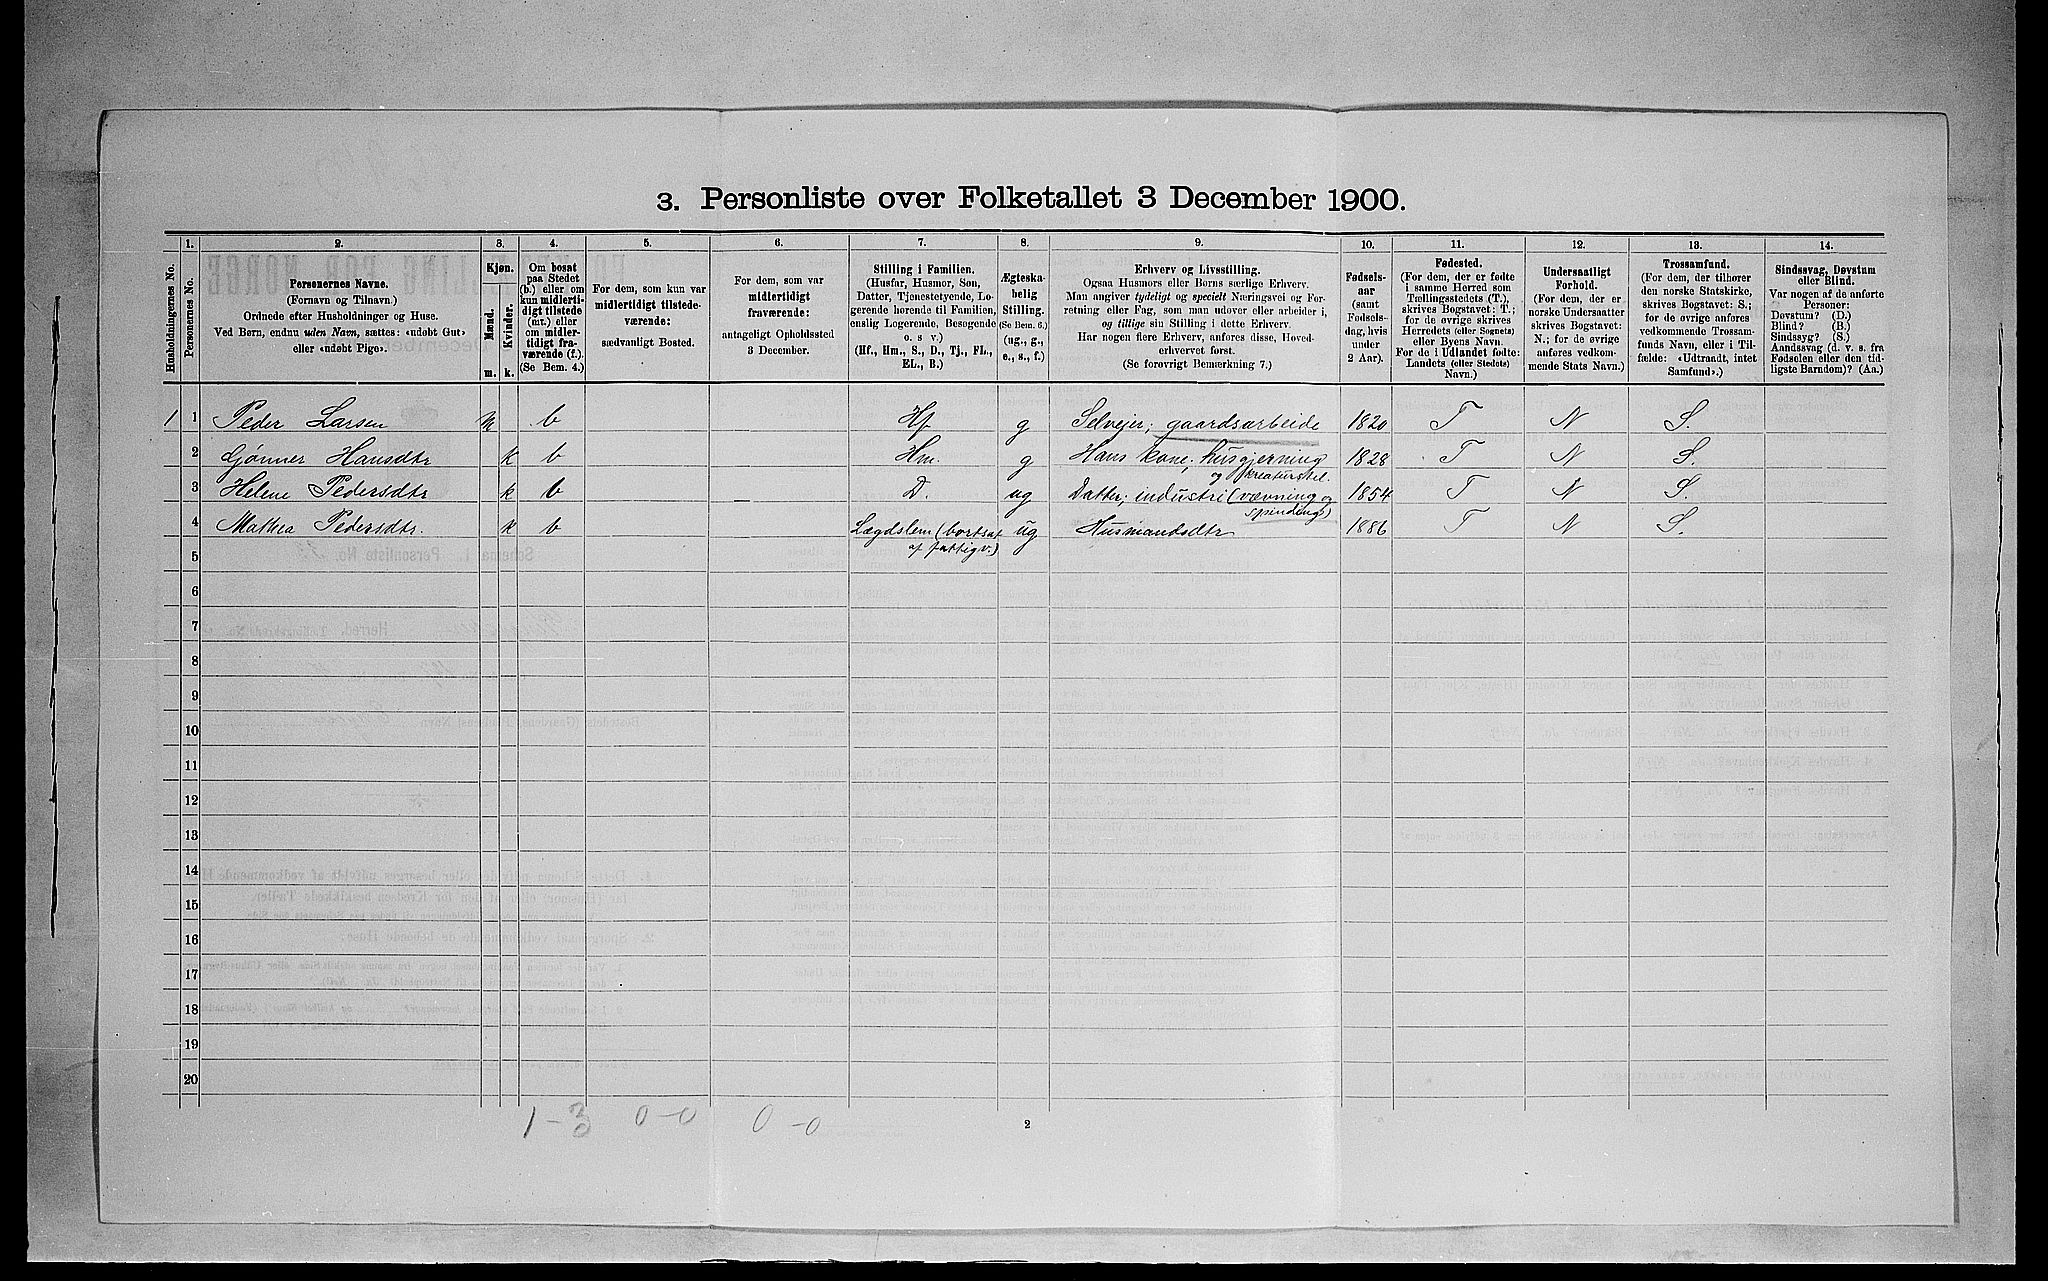 3. Personliste over Folketallet 3 December 1900.
1. 2. 3. 4. 5. 6. 7. 8. 9. 10. 11. 12. 13. 14.
Husholdningernes No.
Personernes No.
Personernes Navne.
(Fornavn og Tilnavn.)
Ordnede efter Husholdninger og Huse.
Ved Børn, endnu uden Navn, sættes: «udøbt Gut»
eller «udøbt Pige».
Kjøn.
Mænd.
Kvinder.
m. k.
Om bosat
paa Stedet
(b.) eller om
kun midlerti-
digt tilstede
(mt.) eller
om midler-
tidigt fra-
værende (f.).
(Se Bem. 4.)
For dem, som kun var
midlertidigt tilstede-
værende:
sædvanligt Bosted.
For dem, som var
midlertidigt
fraværende:
antageligt Opholdssted
3 December.
Stilling i Familien.
(Husfar, Husmor, Søn,
Datter, Tjenestetyende, Lo-
gerende hørende til Familien,
enslig Logerende, Besøgende
o. s v.)
(Hf., Hm., S., D., Tj., FL.,
EL., B.)
Ægteska-
belig
Stilling.
(Se Bem. 6.)
(ug., g.,
e., s., f.)
Erhverv og Livsstilling.
Ogsaa Husmors eller Børns særlige Erhverv.
Man angiver tydeligt og specielt Næringsvei og For-
retning eller Fag, som man udover eller arbeider i,
og tillige sin Stilling i dette Erhverv.
Har nogen flere Erhverv, anføres disse, Hoved-
erhvervet først.
(Se forøvrigt Bemerkning 7.)
Fødsels-
aar
(samt
Fødsels-
dag, hvis
under
2 Aar).
Fødested.
(For dem, der er fødte
i samme Herred som
Tællingsstedets (T.),
skrives Bogstavet: T.;
for de øvrige skrives
Herredets (eller Sognets)
eller Byens Navn.
For de i Udlandet fødte:
Landets (eller Stedets)
Navn.)
Undersaatligt
Forhold.
(For dem, der er
norske Undersaatter
skrives Bogstavet:
N.; for de øvrige
anføres vedkom-
mende Stats Navn.)
Trossamfund.
(For dem, der tilhører
den norske Statskirke,
skrives Bogstavet: S.;
for de øvrige anføres
vedkommende Trossam-
funds Navn, eller i Til-
fælde: «Udtraadt, intet
Samfund».)
Sindssvag, Døvstum
eller Blind.
Var nogen af de anførte
Personer:
Døvstum? (D.)
Blind? (B.)
Sindssyg? (S.)
Aandssvag (d. v. s. fra
Fødselen eller den tid-
ligste Barndom)? (Aa.)
1 1 Peder Larsen m b Hf g Selveier, gaardsarbeide 1820 T N S.
2 Gønner Hansdtr k b Hm. g Hans kone; husgjerning 1828 T N S.
og kreaturstel.
3 Helene Pedersdtr k b D. ug Datter; industri (vævning og 1854 T N S.
spinding)
4 Mathea Pedersdtr. k b Lægdslem (bortsat ug Husmandsdtr 1886 T N S.
af fattigv.)
5
6
7
8
9
10
11
12
13
14
15
16
17
18
19
20
1-3 0-0 0-0
2